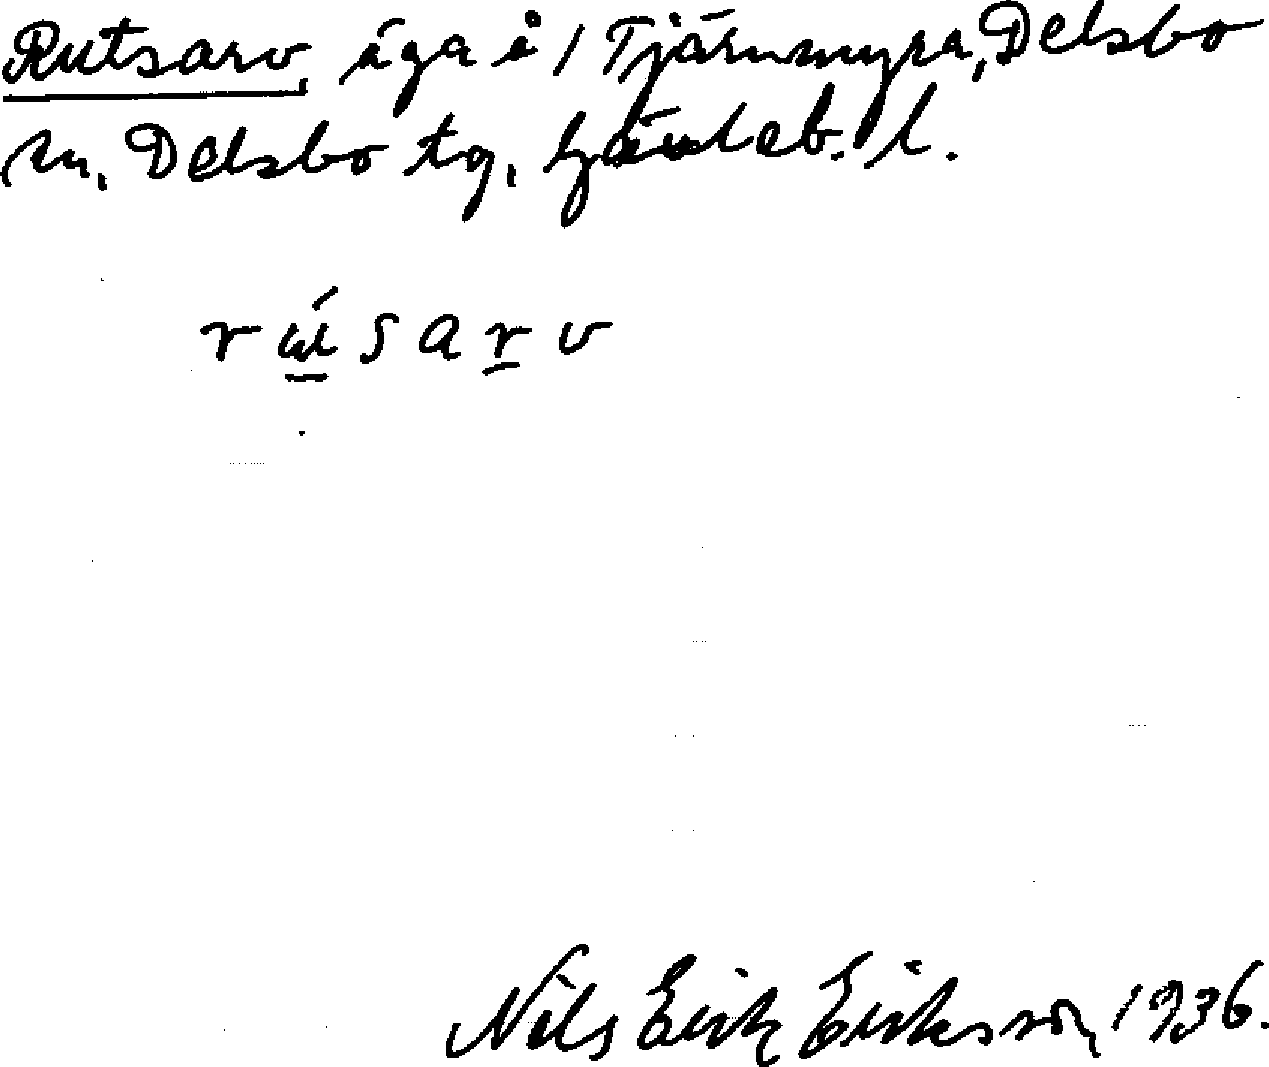 Rutsarv, äga å 1 Tjärnmyra, Delsbo
sn, Delsbo tg, Gävleb. l.
rɯ́sarv
Nils Erik Eriksson, 1936.